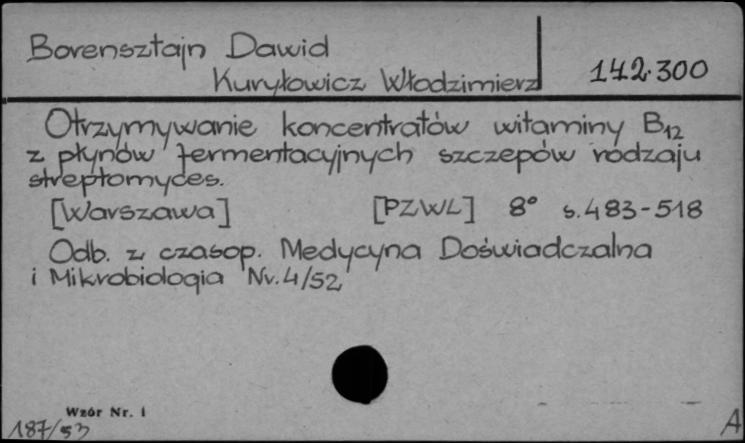 Borensztajn Dawid
Kuryłowicz Włodzimierz
142.300
Otrzymywanie koncentratów witaminy B₁₂
z płynów fermentacyjnych szczepów rodzaju
streptomyces.
[Warszawa] [PZWL] 8° s.483-518
Odb. z czasop. Medycyna Doświadczalna
i Mikrobiologia Nr.4/52
Wzór Nr. 1
187/53
A